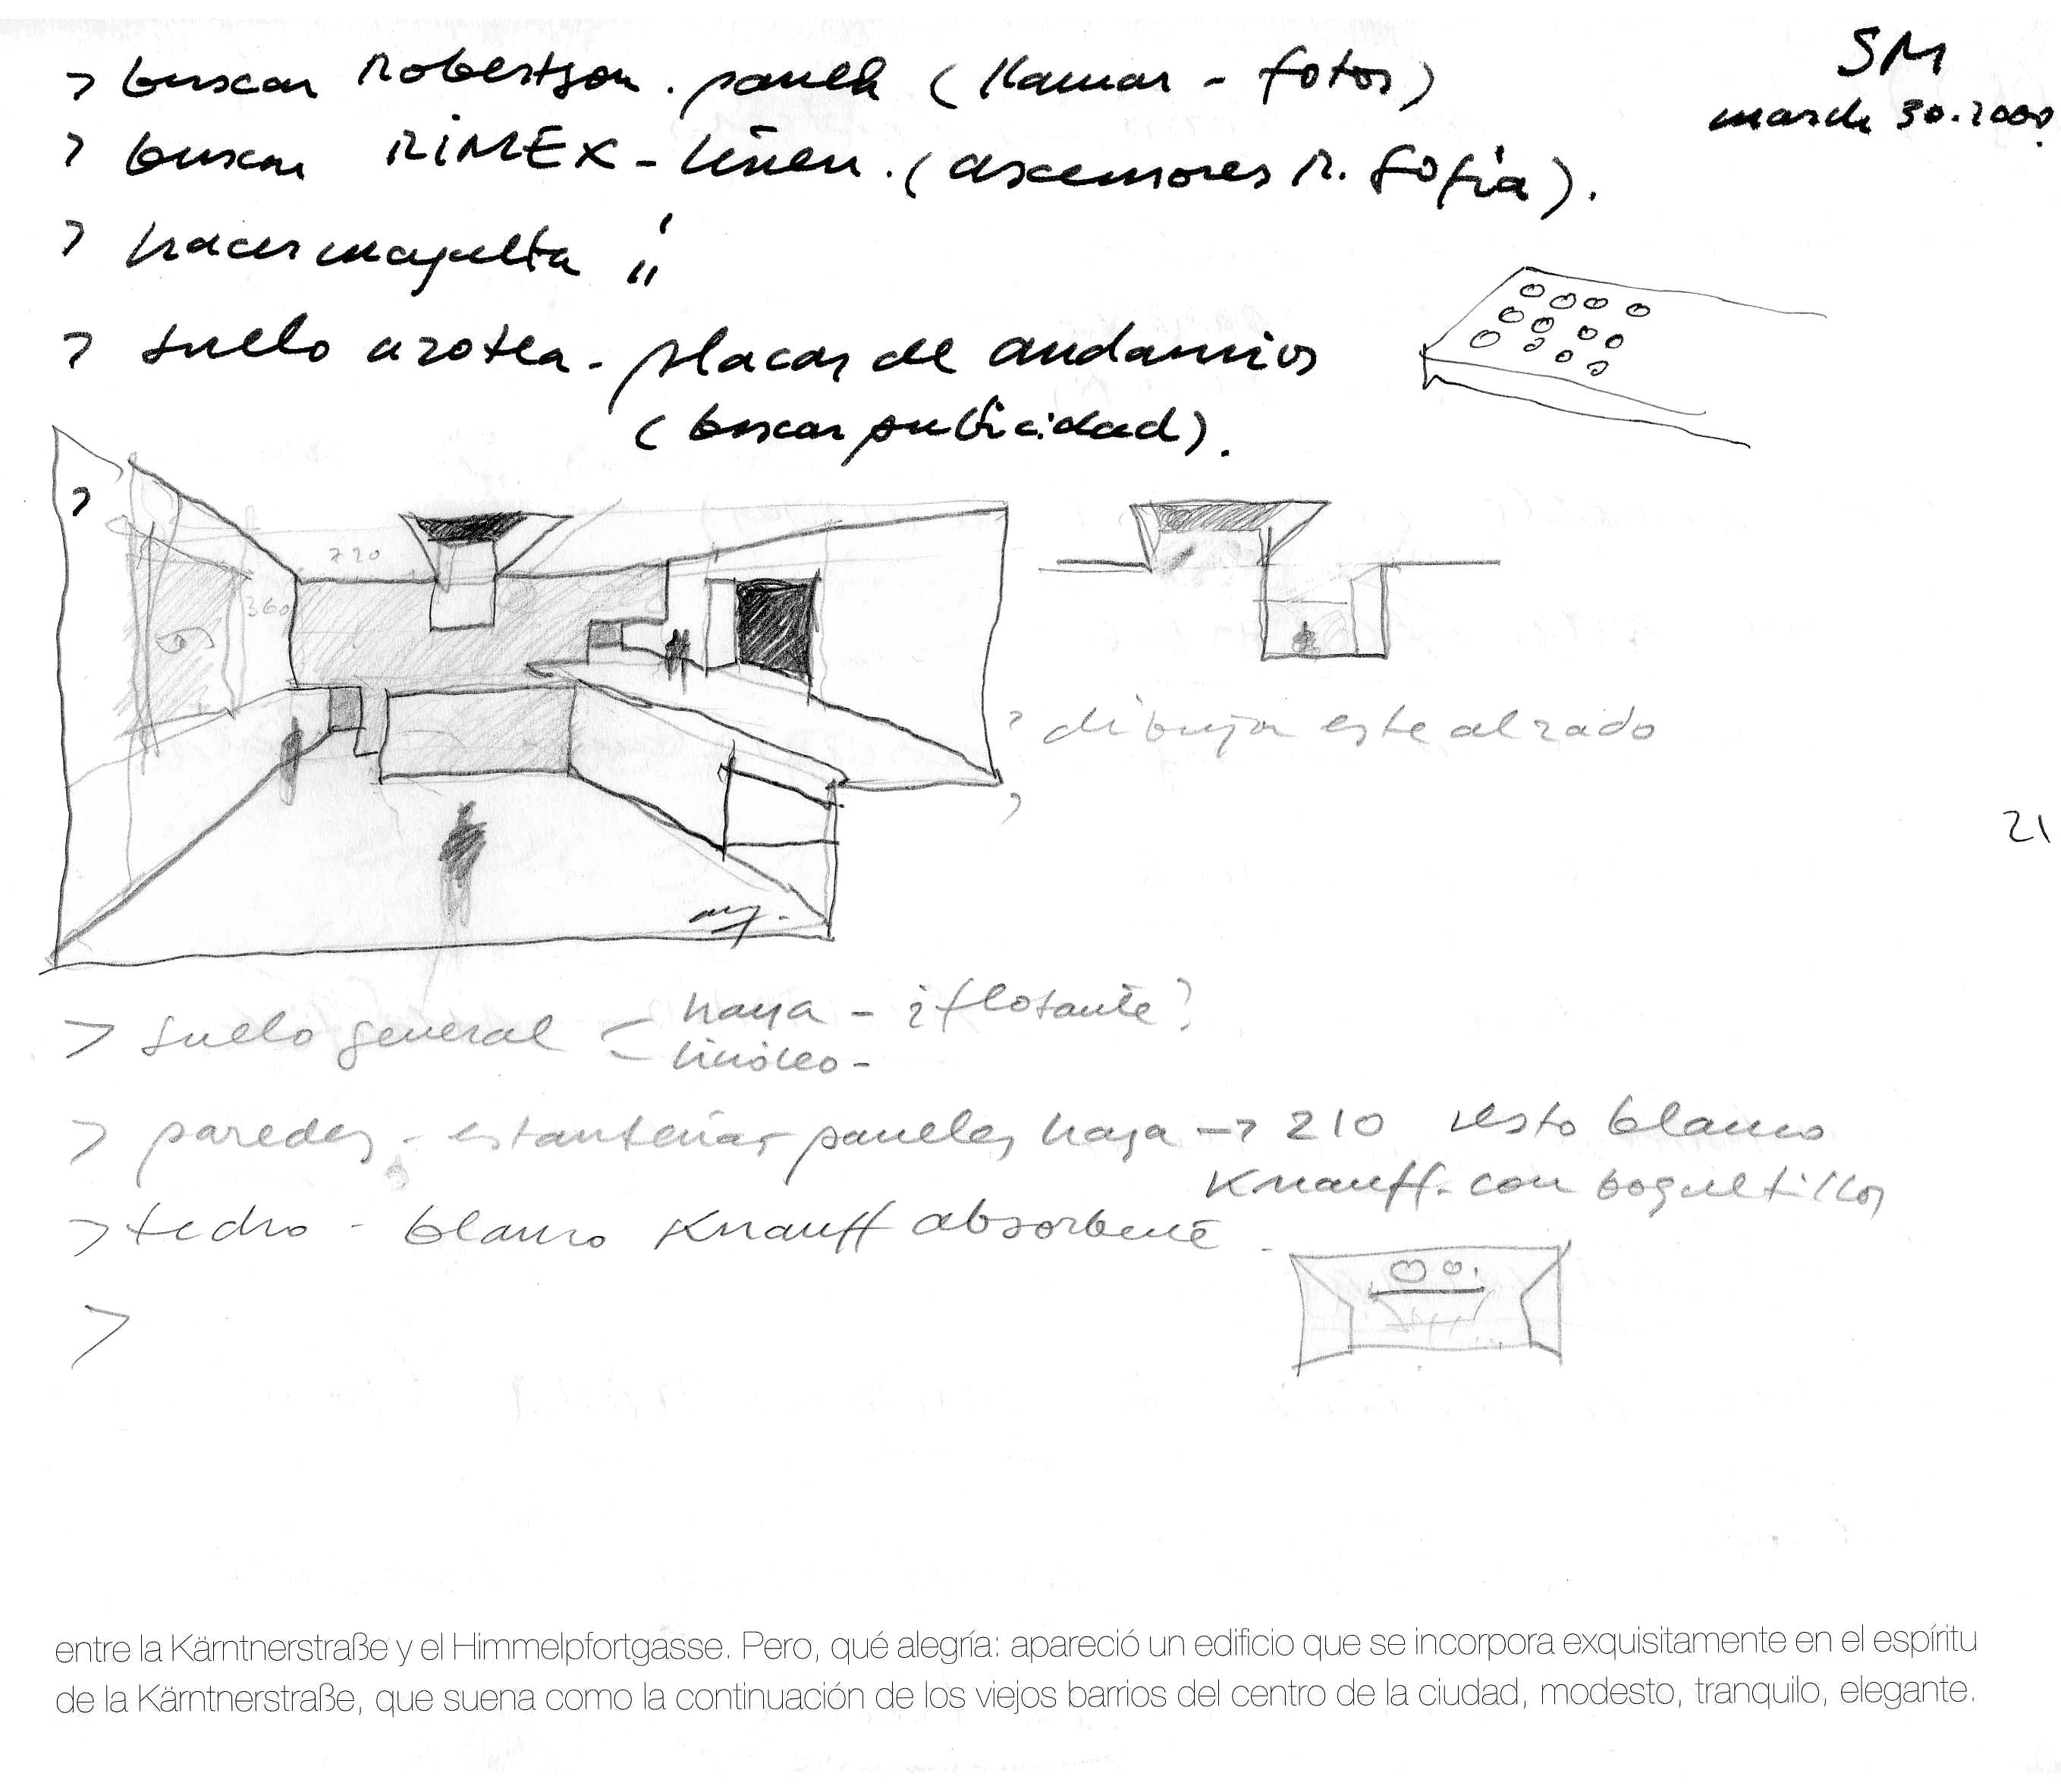 SM
march 30.2000.
> buscar Robertson. panels (llamar - fotos)
> buscar RIMEX - linen. (ascensores R. Sofia).
> hacer maqueta
> suelo azotea - placas de andamios
(buscar publicidad).
>
720
360
> dibujar este alzado
>
21
> suelo general < haya - ¿flotante?
linóleo -
> paredes - estanterías paneles haya -> 210 resto blanco
Knauff. con boquetillos
> techo - blanco Knauff absorbente
>
entre la Kärntnerstraße y el Himmelpfortgasse. Pero, qué alegría: apareció un edificio que se incorpora exquisitamente en el espíritu
de la Kärntnerstraße, que suena como la continuación de los viejos barrios del centro de la ciudad, modesto, tranquilo, elegante.